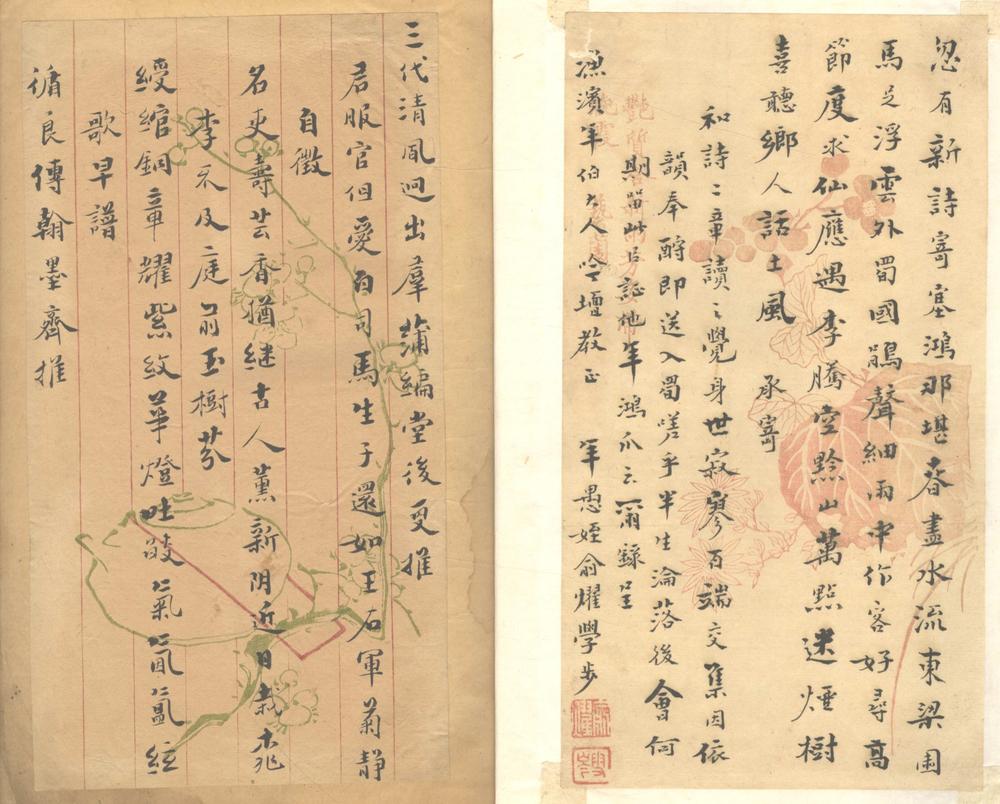 忽有新詩寄塞鴻那堪春盡水流東梁園
馬足浮雲外蜀國鵑聲細雨中作客好尋高
節度求仙應遇李騰空黔山萬點迷煙樹
喜聽鄉人話土風 承寄
和詩二章讀之覺身世寂寥百端交集因依
韻奉酧即送入蜀嗟乎半生淪落後會何
期畱此以証他年鴻爪云爾錄呈
漁濱年伯大人吟壇教正 年愚姪俞燿學步
三代清風迥出羣蒲編堂後更推
君服官但愛白司馬生子還如王右軍菊靜
自徵
名吏壽芸香猶繼古人薰新陰近日栽桃
李不及庭前玉樹芬
綬綰銅章耀紫紋華燈吐燄氣氤氳絃
歌早譜
循良傳翰墨齊推